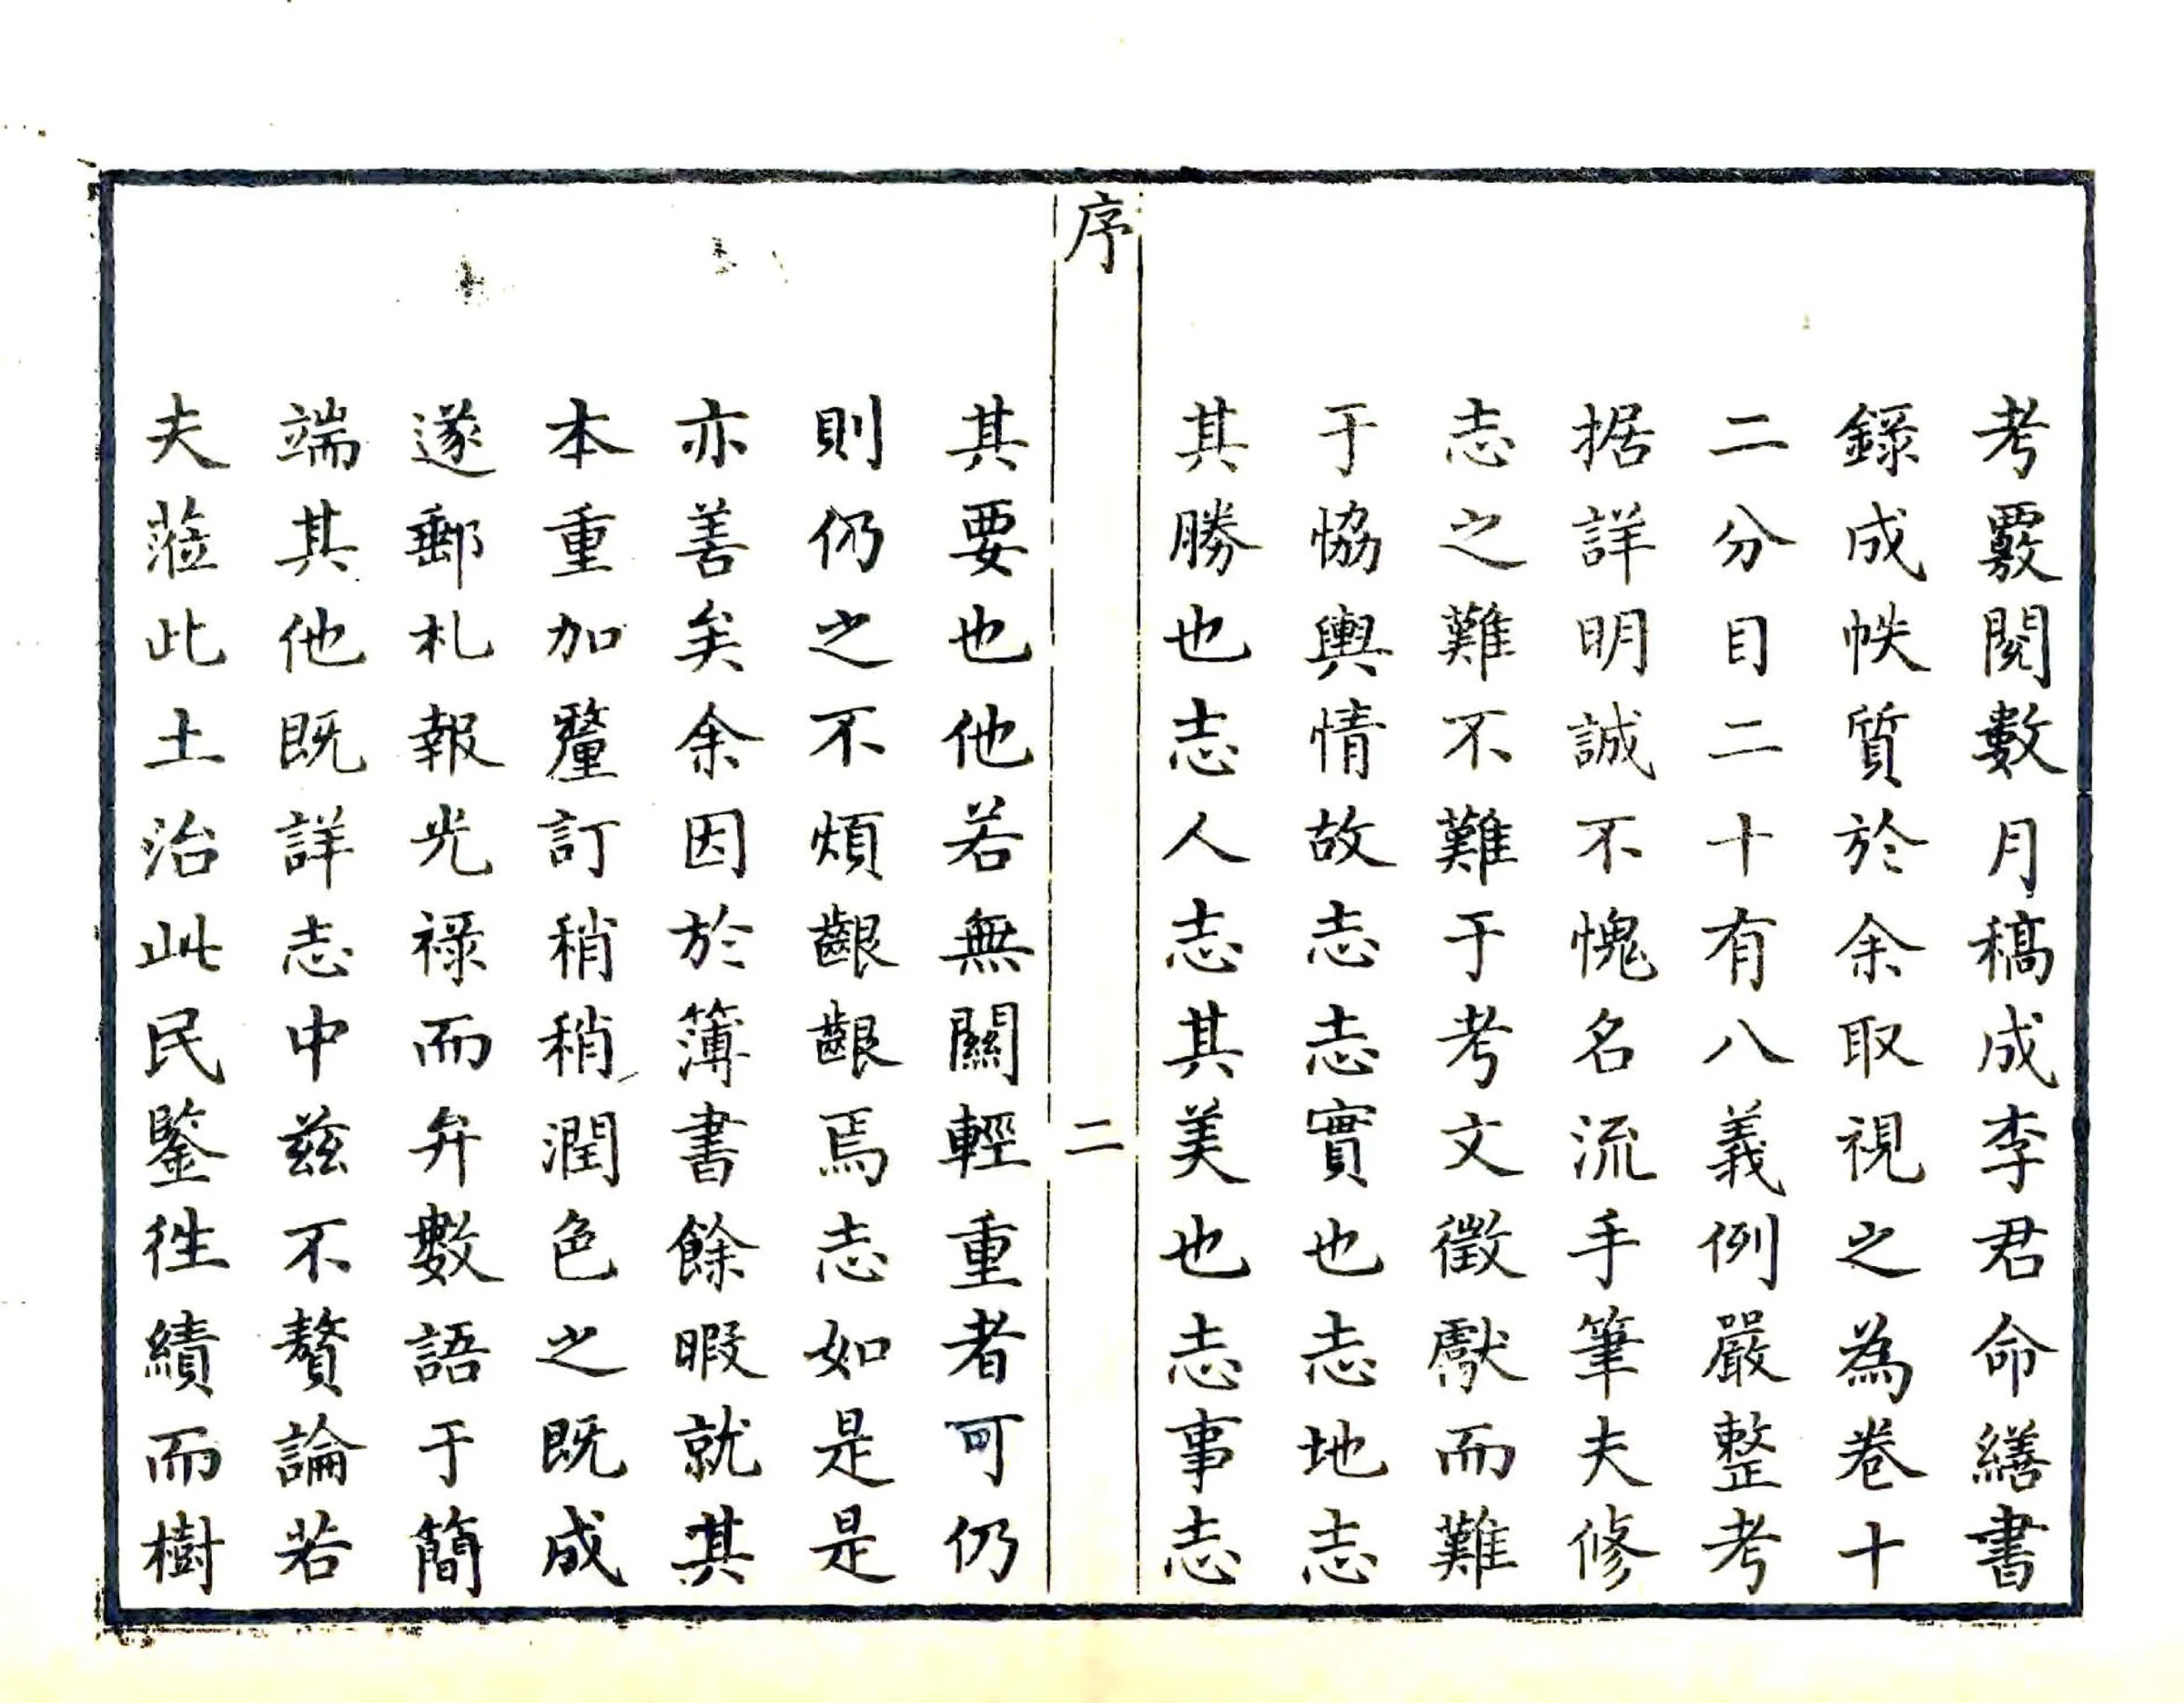 考覈閱數月稿成李君命繕書
錄成帙質於余取視之為卷十
二分目二十有八義例嚴整考
据詳明誠不愧名流手筆夫修
志之難不難于考文徵獻而難
于恊輿情故志志實也志地志
其勝也志人志其美也志事志
序
二
其要也他若無關輕重者可仍
則仍之不煩齦齦焉志如是是
亦善矣余因於簿書餘暇就其
本重加釐訂稍稍潤色之既成
遂郵札報光祿而弁數語于簡
端其他既詳志中茲不贅論若
夫蒞此土治此民鑒徃績而樹